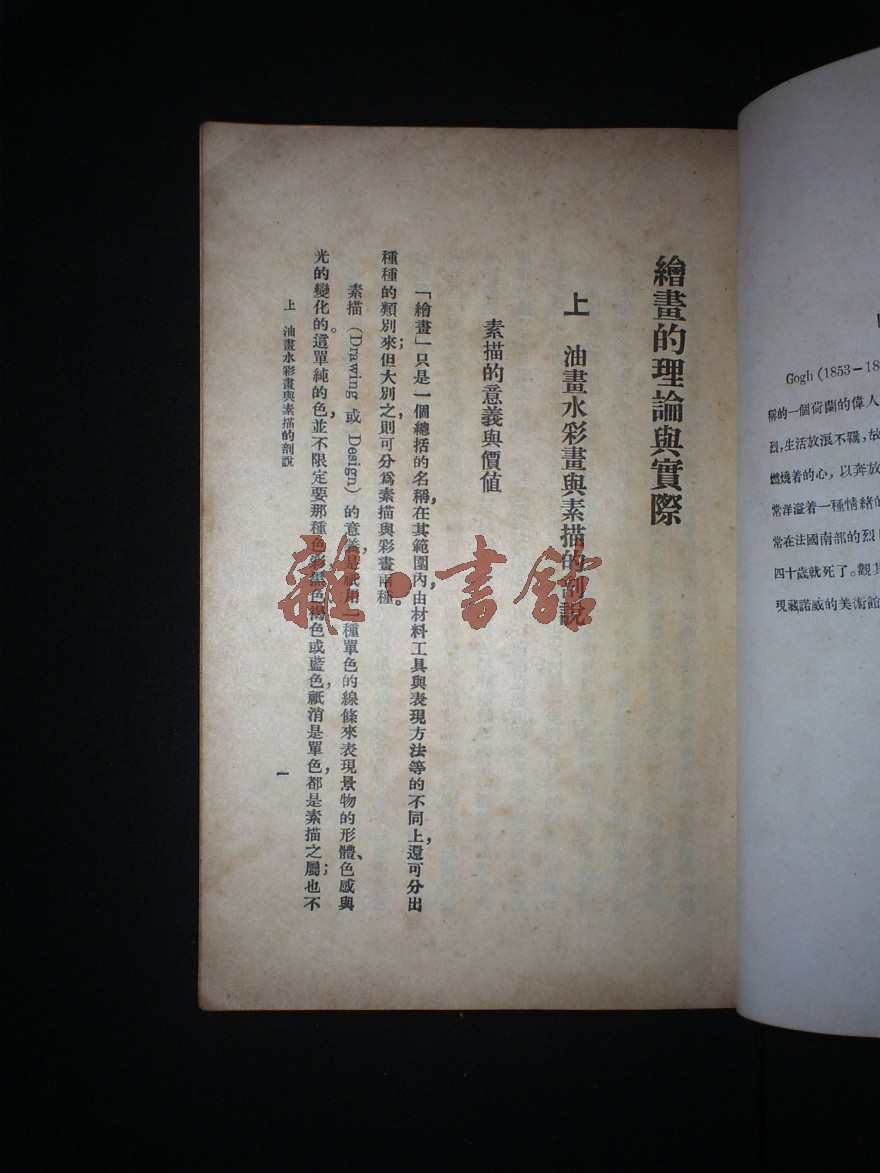 繪畫的理論與實際
上 油畫水彩畫與素描的剖說
素描的意義與價值
「繪畫」只是一個總括的名稱，在其範圍內，由材料工具與表現方法等的不同上，還可分出
種種的類別來；但大別之，則可分爲素描與彩畫兩種。
素描（Drawing 或 Design）的意義，是用一種單色的線條來表現景物的形體、色感與
光的變化的。這單純的色，並不限定要那種色彩，黑色褐色或藍色，祇消是單色，都是素描之屬；也不
上 油畫水彩畫與素描的剖說
一
雜·書館
Gogh (1853－18
稱的一個荷蘭的偉人
烈，生活放浪不羈，故
燃燒着的心，以奔放
常洋溢着一種情緒的
常在法國南部的烈日
四十歲就死了。觀其
現藏諾威的美術館